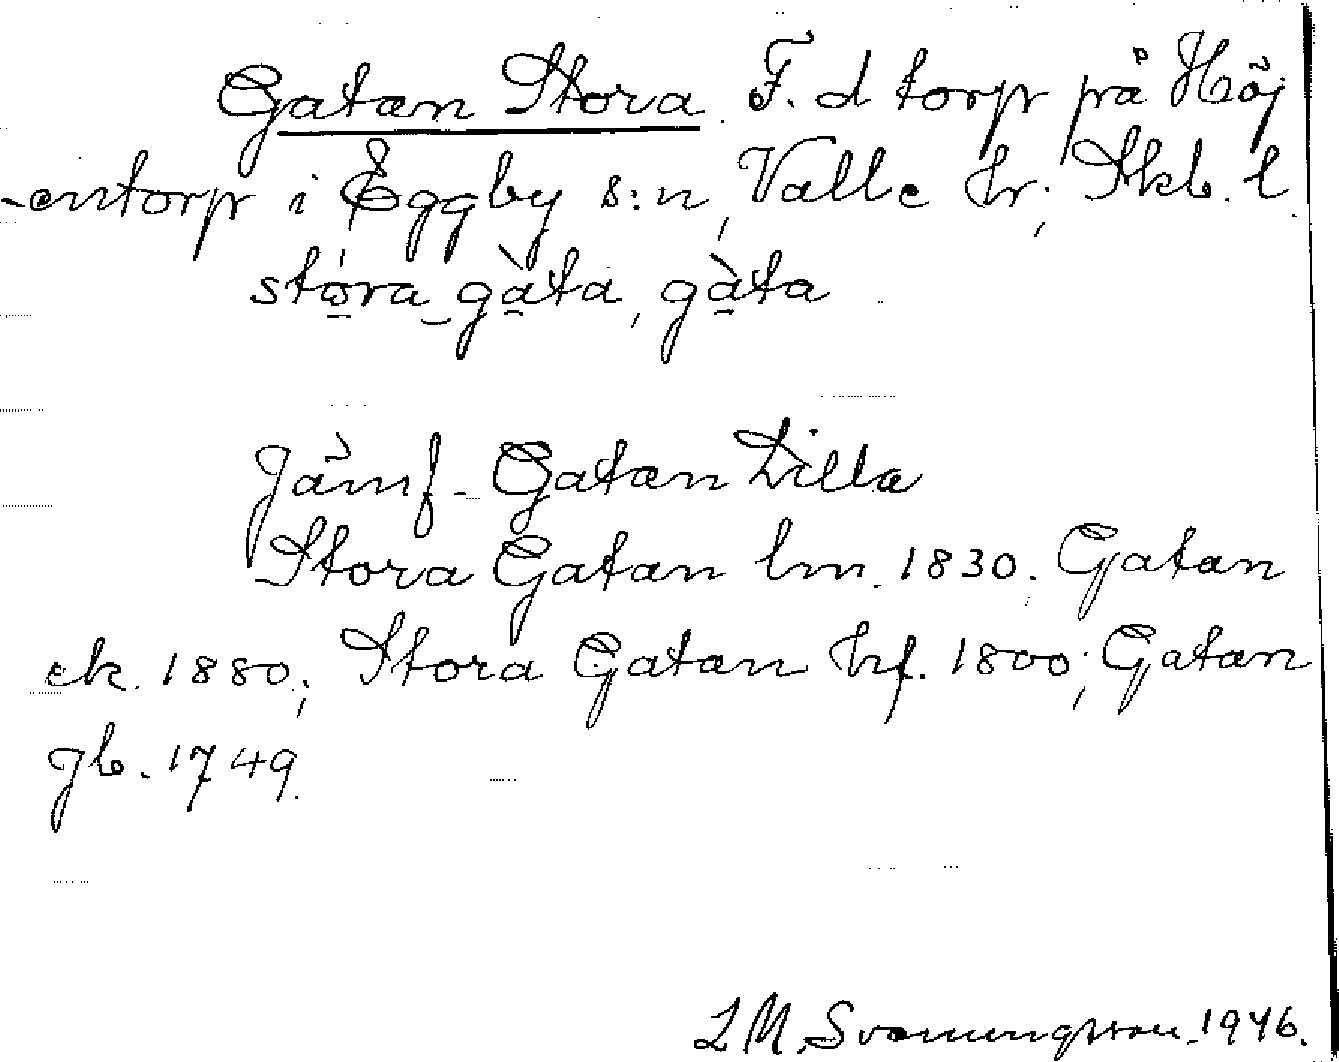 Gatan Stora. F. d torp på Höj
-entorp i Eggby s:n, Valle hr; Skb. l.
stora gàta, gàta
Jämf. Gatan Lilla
Stora Gatan lm. 1830; Gatan
ek. 1880; Stora Gatan hf. 1800; Gatan
jb. 1749.
L M. Svanungsson. 1946.